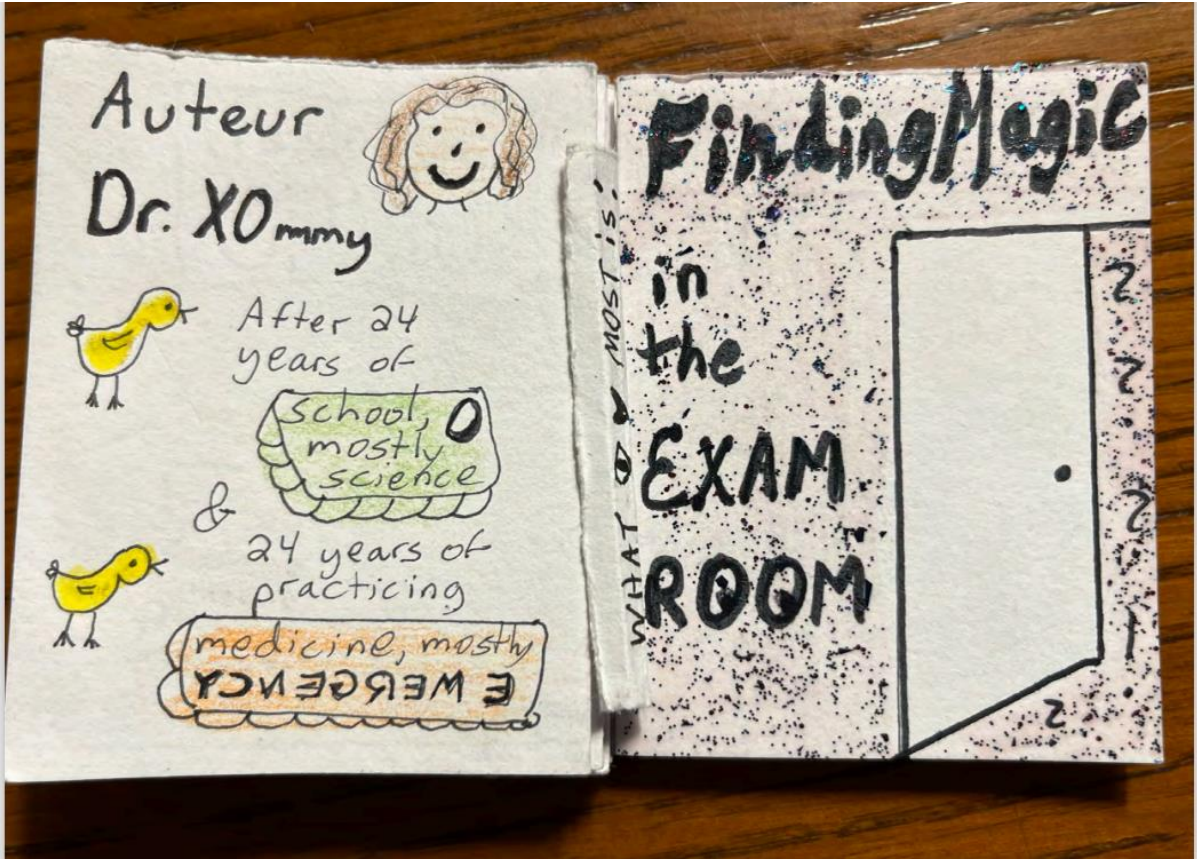 Auteur
Dr. XOmmy
After 24
years of
school,
mostly
science
&
24 years of
practicing
medicine, mostly
EMERGENCY
WHAT
MOST IS:
Finding Magic
in
the
EXAM
ROOM